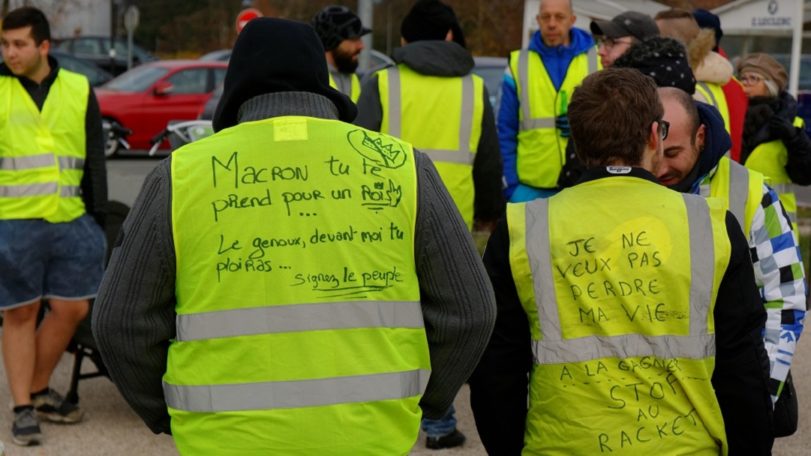 E.LECLERC
Macron tu te
prend pour un Rois
...
Le genoux, devant moi tu
ploiras...
Signez le peuple
JE NE
VEUX PAS
PERDRE
MA VIE
A LA GAGNER
STOP
AU
RACKET